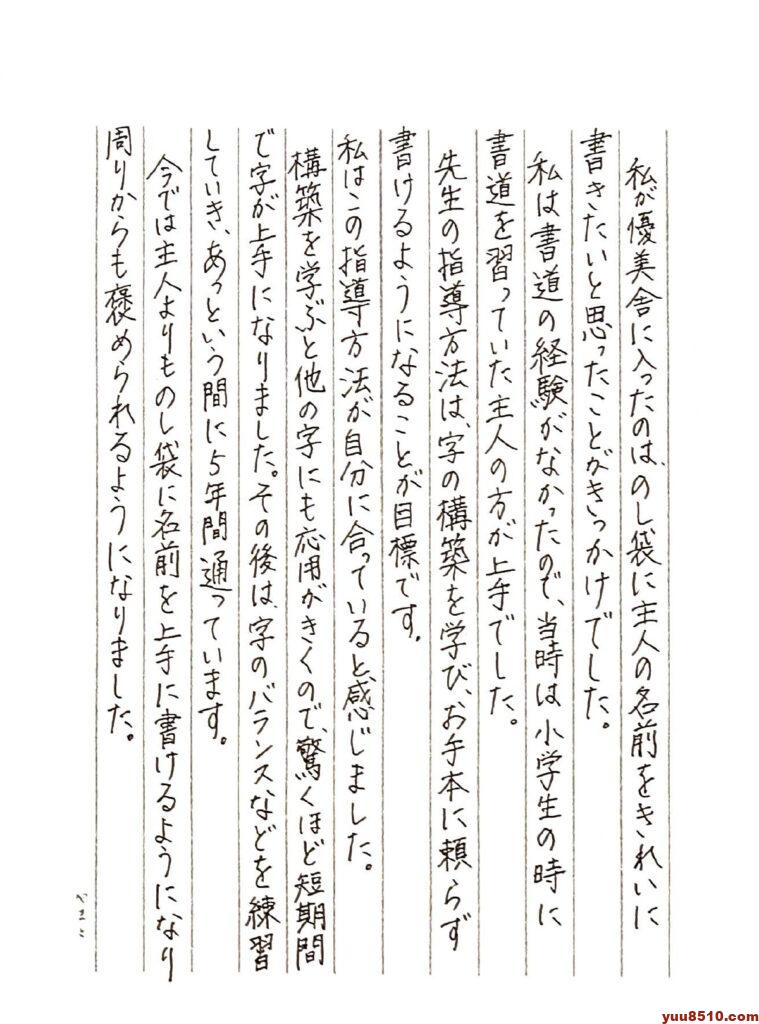 私が優美舎に入ったのは、のし袋に主人の名前をきれいに
書きたいと思ったことがきっかけでした。
私は書道の経験がなかったので、当時は小学生の時に
書道を習っていた主人の方が上手でした。
先生の指導方法は、字の構築を学び、お手本に頼らず
書けるようになることが目標です。
私はこの指導方法が自分に合っていると感じました。
構築を学ぶと他の字にも応用がきくので、驚くほど短期間
で字が上手になりました。その後は、字のバランスなどを練習
していき、あっという間に5年間通っています。
今では主人よりものし袋に名前を上手に書けるようになり
周りからも褒められるようになりました。
やまと
yuu8510.com